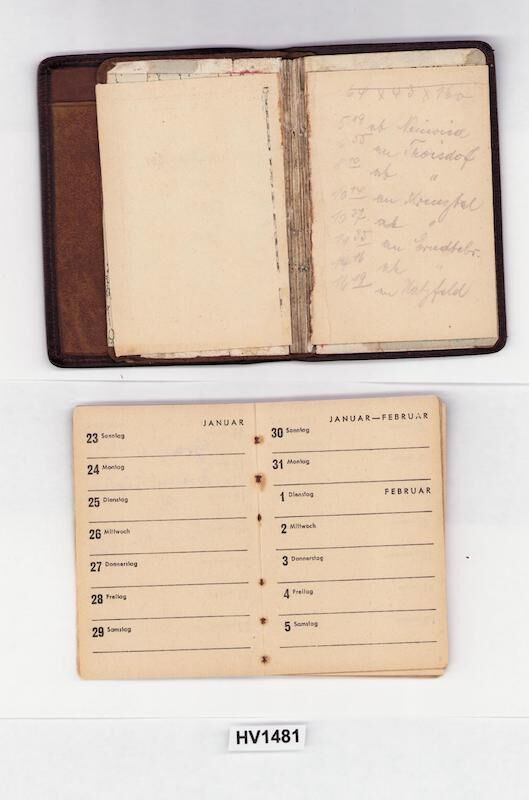 64 x 43 x 130
5 19 ab Neuwied
an Troisdof
ab "
10 24 an Kreuztal
10 37 ab "
an Erndtebr.
ab "
16 19 an Hatzfeld
JANUAR
23 Sonntag
24 Montag
25 Dienstag
26 Mittwoch
27 Donnerstag
28 Freitag
29 Samstag
JANUAR—FEBRUAR
30 Sonntag
31 Montag
1 Dienstag FEBRUAR
2 Mittwoch
3 Donnerstag
4 Freitag
5 Samstag
HV1481